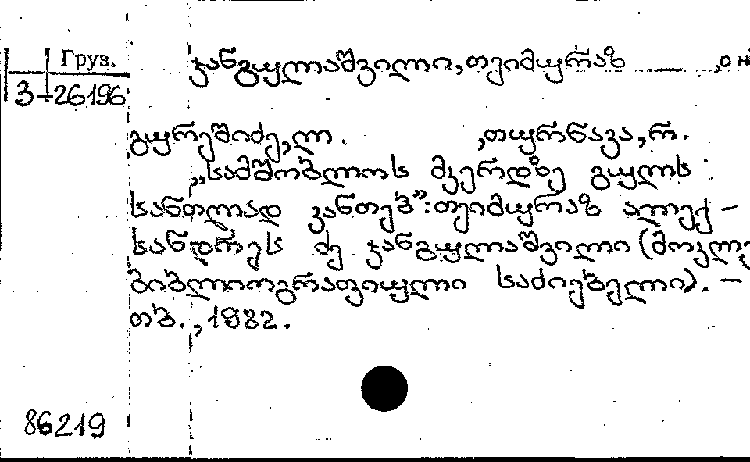 Груз.
ჯანგულაშვილი, თეიმურაზ , о н
3-26196
გურეშიძე, ლ. , თურნავა, რ.
„სამშობლოს მკერდზე გულს
სანთლად ვანთებ“: თეიმურაზ ალექ-
სანდრეს ძე ჯანგულაშვილი (მოკლე
ბიბლიოგრაფიული საძიებელი). –
თბ., 1982.
86219